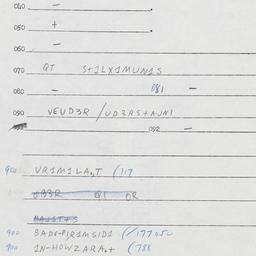 040 —
050 +
060 —
070 QT S+1LX1MUN1S
080 — 081 —
090 VEUD3R / UD3RS+AJN1
092 —
900 VR1M1LA,T (117
QI OR
900 BADE-PJR1MS1D1 (/177050
900 1N-HOWZARA,+ (788